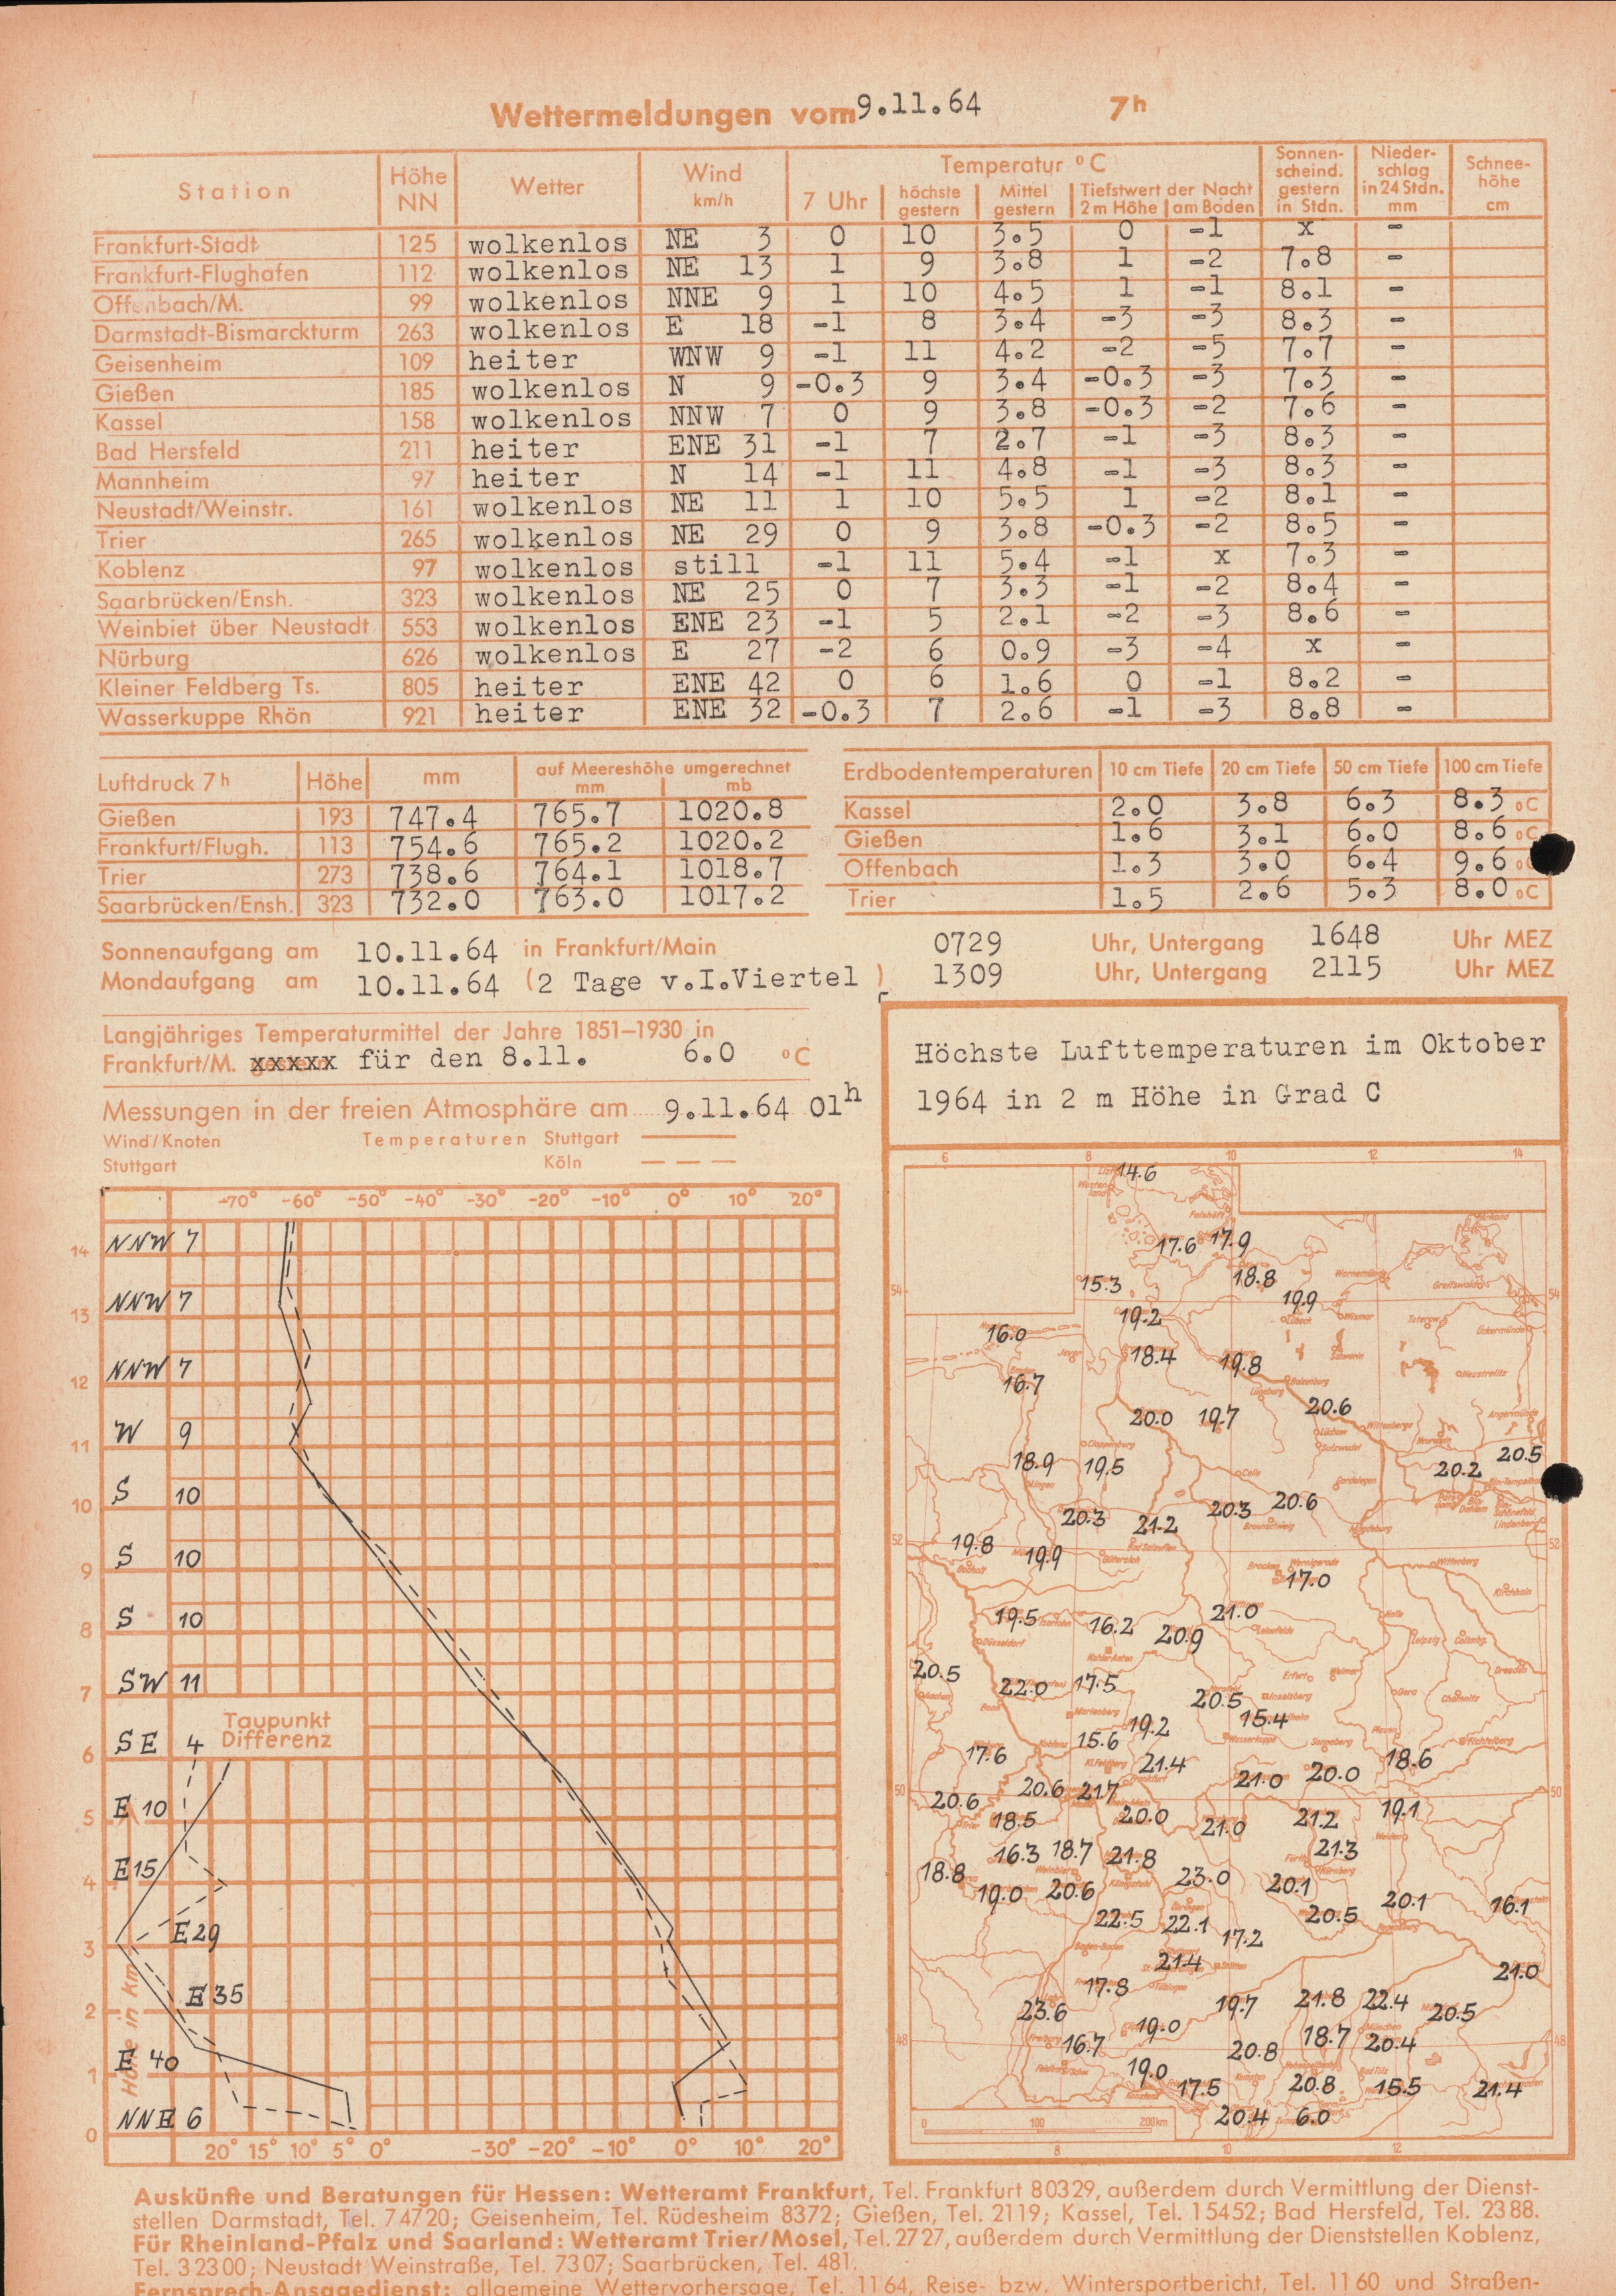 Wettermeldungen vom 9.11.64 7h
Station Höhe NN Wetter Wind km/h Temperatur °C 7 Uhr höchste gestern Mittel gestern Tiefstwert der Nacht 2 m Höhe am Boden Sonnen-scheind. gestern in Stdn. Nieder-schlag in 24 Stdn. mm Schnee-höhe cm
Frankfurt-Stadt 125 wolkenlos NE 3 0 10 3.5 0 -1 x -
Frankfurt-Flughafen 112 wolkenlos NE 13 1 9 3.8 1 -2 7.8 -
Offenbach/M. 99 wolkenlos NNE 9 1 10 4.5 1 -1 8.1 -
Darmstadt-Bismarckturm 263 wolkenlos E 18 -1 8 3.4 -3 -3 8.3 -
Geisenheim 109 heiter WNW 9 -1 11 4.2 -2 -5 7.7 -
Gießen 185 wolkenlos N 9 -0.3 9 3.4 -0.3 -3 7.3 -
Kassel 158 wolkenlos NNW 7 0 9 3.8 -0.3 -2 7.6 -
Bad Hersfeld 211 heiter ENE 31 -1 7 2.7 -1 -3 8.3 -
Mannheim 97 heiter N 14 -1 11 4.8 -1 -3 8.3 -
Neustadt/Weinstr. 161 wolkenlos NE 11 1 10 5.5 1 -2 8.1 -
Trier 265 wolkenlos NE 29 0 9 3.8 -0.3 -2 8.5 -
Koblenz 97 wolkenlos still -1 11 5.4 -1 x 7.3 -
Saarbrücken/Ensh. 323 wolkenlos NE 25 0 7 3.3 -1 -2 8.4 -
Weinbiet über Neustadt 553 wolkenlos ENE 23 -1 5 2.1 -2 -3 8.6 -
Nürburg 626 wolkenlos E 27 -2 6 0.9 -3 -4 x -
Kleiner Feldberg Ts. 805 heiter ENE 42 0 6 1.6 0 -1 8.2 -
Wasserkuppe Rhön 921 heiter ENE 32 -0.3 7 2.6 -1 -3 8.8 -
Luftdruck 7h Höhe mm auf Meereshöhe umgerechnet mm mb
Gießen 193 747.4 765.7 1020.8
Frankfurt/Flugh. 113 754.6 765.2 1020.2
Trier 273 738.6 764.1 1018.7
Saarbrücken/Ensh. 323 732.0 763.0 1017.2
Erdbodentemperaturen 10 cm Tiefe 20 cm Tiefe 50 cm Tiefe 100 cm Tiefe
Kassel 2.0 3.8 6.3 8.3 °C
Gießen 1.6 3.1 6.0 8.6 °C
Offenbach 1.3 3.0 6.4 9.6
Trier 1.5 2.6 5.3 8.0 °C
Sonnenaufgang am 10.11.64 in Frankfurt/Main 0729 Uhr, Untergang 1648 Uhr MEZ
Mondaufgang am 10.11.64 (2 Tage v.I.Viertel ) 1309 Uhr, Untergang 2115 Uhr MEZ
Langjähriges Temperaturmittel der Jahre 1851–1930 in
Frankfurt/M. xxxxx für den 8.11. 6.0 °C
Messungen in der freien Atmosphäre am 9.11.64 01h
Wind/Knoten Temperaturen Stuttgart
Stuttgart Köln
-70° -60° -50° -40° -30° -20° -10° 0° 10° 20°
14 NNW 7
13 NNW 7
12 NNW 7
11 W 9
10 S 10
9 S 10
8 S 10
7 SW 11
Taupunkt
Differenz
6 SE 4
5 E 10
4 E 15
3 E 29
2 E 35
1 E 40
0 NNE 6
Höhe in Km
20° 15° 10° 5° 0° -30° -20° -10° 0° 10° 20°
Höchste Lufttemperaturen im Oktober
1964 in 2 m Höhe in Grad C
6 8 10 12 14
14.6
17.6 17.9
54 15.3 18.8 54
19.2 19.9
16.0
18.4 19.8
16.7
20.0 19.7 20.6
18.9 19.5 20.2 20.5
20.3 21.2 20.3 20.6
52 19.8 19.9 52
17.0
19.5 16.2 20.9 21.0
20.5 22.0 17.5 20.5 15.4
17.6 15.6 19.2 18.6
21.4 21.0 20.0
50 20.6 20.6 21.7 50
18.5 20.0 21.0 21.2 19.1
16.3 18.7 21.8 21.3
18.8 19.0 20.6 23.0 20.1
22.5 22.1 17.2 20.5 20.1 16.1
21.4 21.0
17.8
23.6 19.7 21.8 22.4 20.5
48 16.7 19.0 20.8 18.7 20.4 48
19.0 17.5 20.8 15.5 21.4
20.4 6.0
0 100 200 km
8 10 12
Auskünfte und Beratungen für Hessen: Wetteramt Frankfurt, Tel. Frankfurt 80329, außerdem durch Vermittlung der Dienst-
stellen Darmstadt, Tel. 74720; Geisenheim, Tel. Rüdesheim 8372; Gießen, Tel. 2119; Kassel, Tel. 15452; Bad Hersfeld, Tel. 2388.
Für Rheinland-Pfalz und Saarland: Wetteramt Trier/Mosel, Tel. 2727, außerdem durch Vermittlung der Dienststellen Koblenz,
Tel. 32300; Neustadt Weinstraße, Tel. 7307; Saarbrücken, Tel. 481.
Fernsprech-Ansagedienst: allgemeine Wettervorhersage, Tel. 1164, Reise- bzw. Wintersportbericht, Tel. 1160 und Straßen-